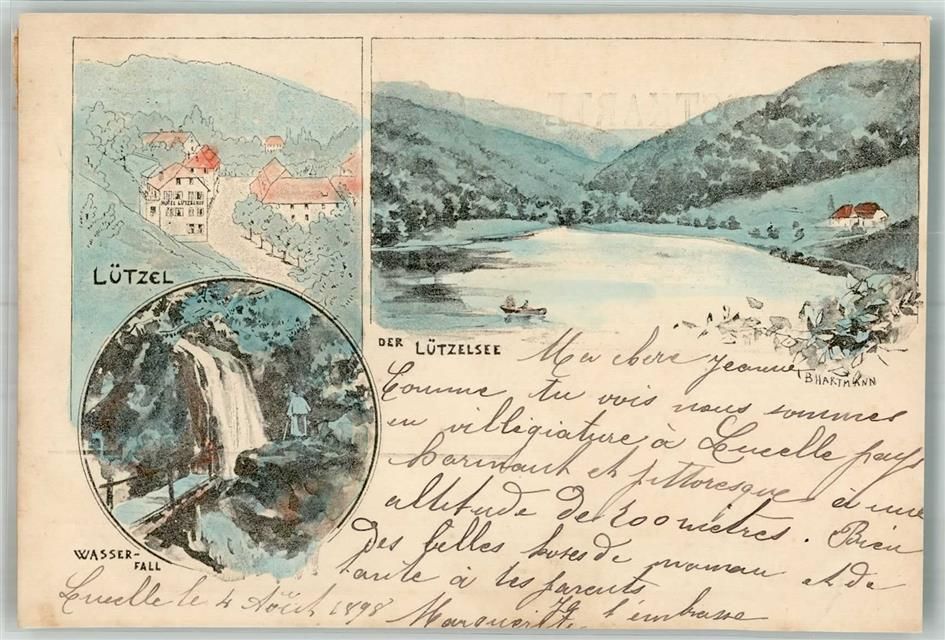 HOTEL LÜTZELHOF
LÜTZEL
DER LÜTZELSEE
B HARTMANN
WASSER-
FALL
Ma chere Jeanne
Comme tu vois nous sommes
en villégiature à Lucelle pays
charmant et pittoresque à une
altitude de 700 mètres. Bien
des belles choses de maman et de
tante à tes parents
Je t'embrasse
Marguerite
Lucelle le 4 Août 1898